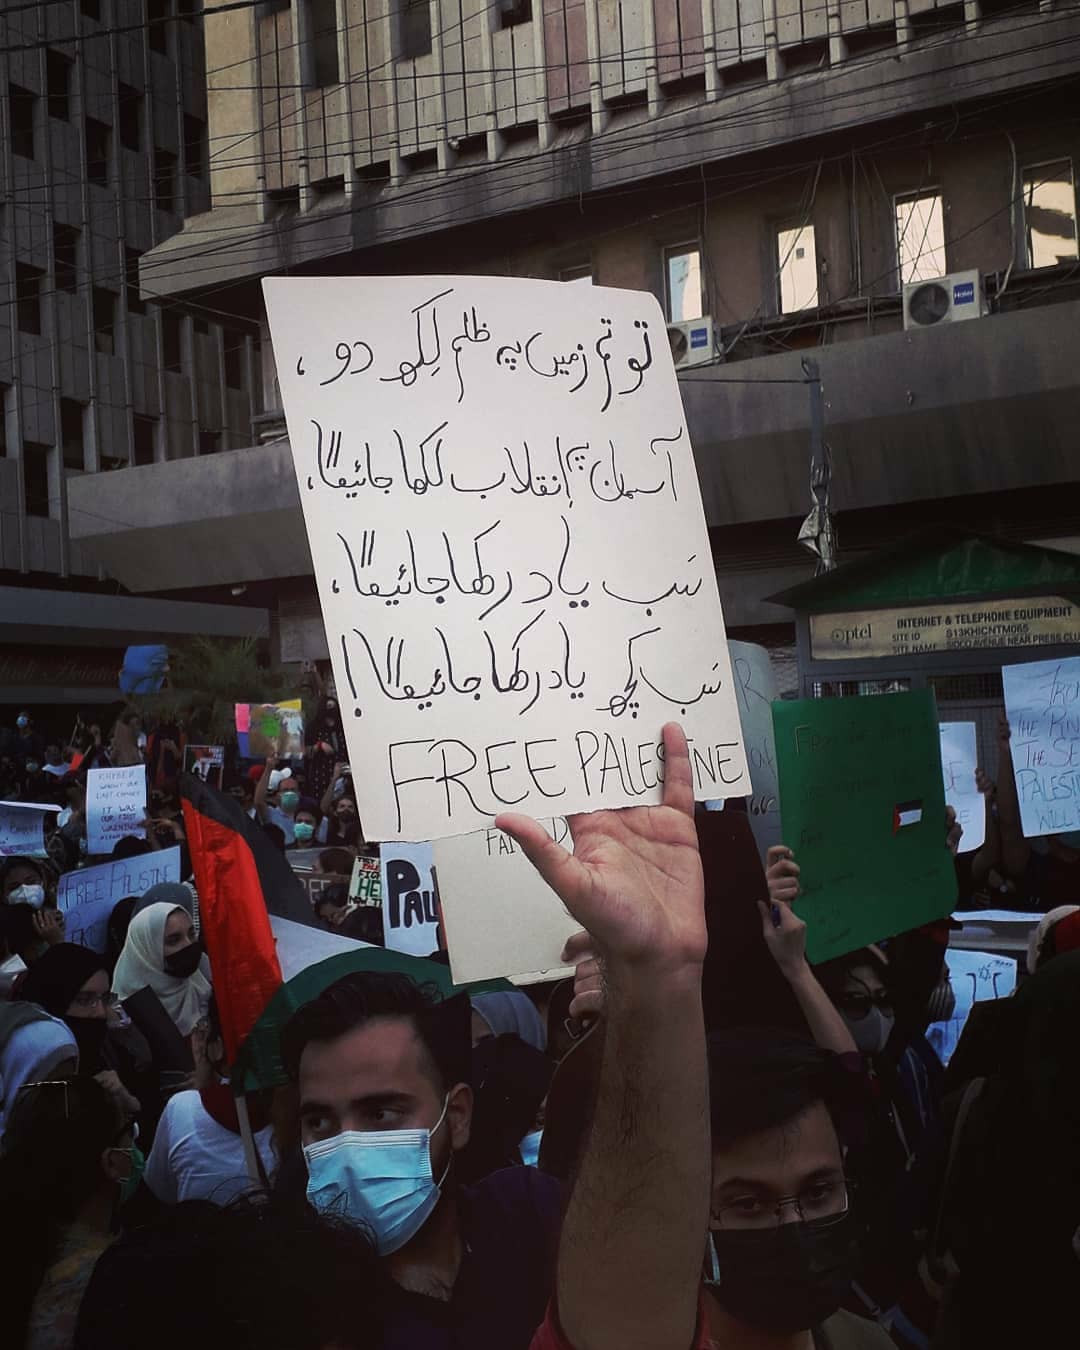 تو تم زمیں پہ ظلم لِکھ دو،
آسمان پہ اِنقلاب لکھا جائیگا،
سَب یاد رکھا جائیگا،
سَب کُچھ یاد رکھا جائیگا!
FREE PALESTINE
Haier
Haier
ptcl
INTERNET & TELEPHONE EQUIPMENT
SITE ID S13KHICNTM065
SITE NAME
NEAR PRESS
KHYBER
WASN'T OUR
LAST CHANCE
IT WAS
OUR FIRST
WARNING
FREE PALESTINE
PAL
FROM
THE RIV
THE SE
PALESTIN
WILL